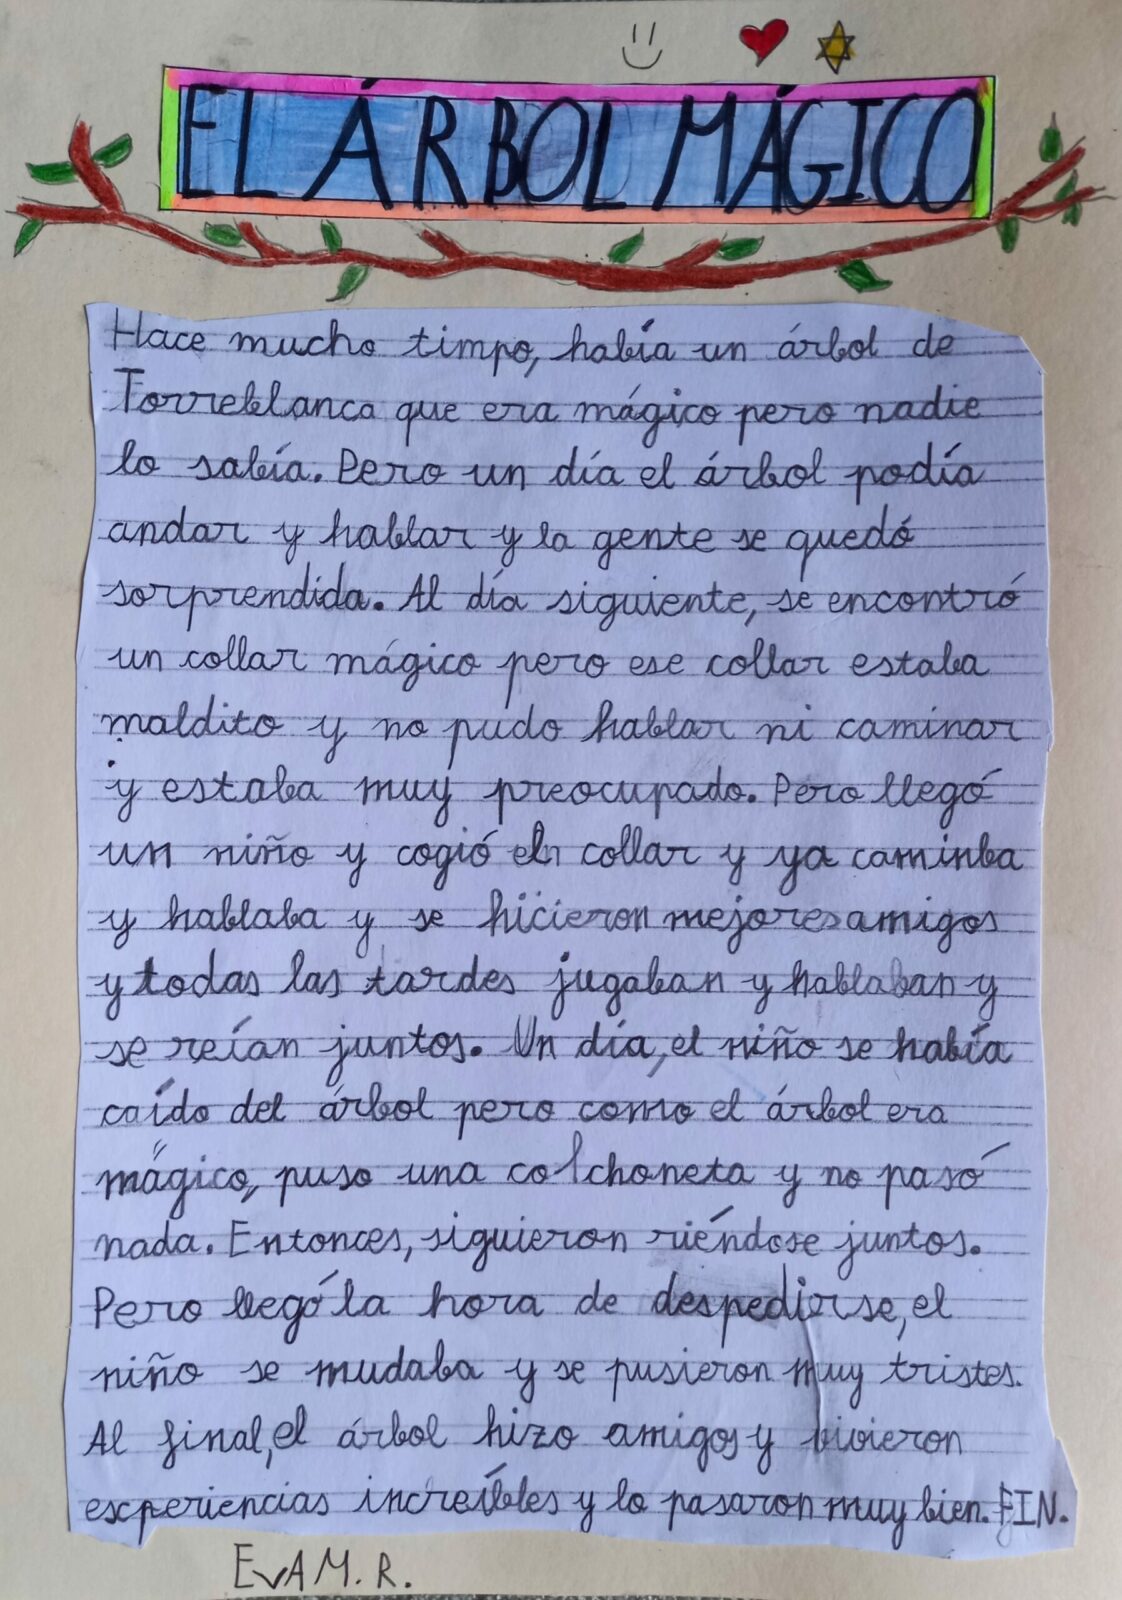 EL ÁRBOL MÁGICO
Hace mucho timpo, había un árbol de
Torreblanca que era mágico pero nadie
lo sabía. Pero un día el árbol podía
andar y hablar y la gente se quedó
sorprendida. Al día siguiente, se encontró
un collar mágico pero ese collar estaba
maldito y no pudo hablar ni caminar
y estaba muy preocupado. Pero llegó
un niño y cogió el collar y ya caminba
y hablaba y se hicieron mejores amigos
y todas las tardes jugaban y hablaban y
se reían juntos. Un día, el niño se había
caído del árbol pero como el árbol era
mágico, puso una colchoneta y no pasó
nada. Entonces, siguieron riéndose juntos.
Pero llegó la hora de despedirse, el
niño se mudaba y se pusieron muy tristes.
Al final, el árbol hizo amigos y vivieron
experiencias increíbles y lo pasaron muy bien. FIN.
EVA M. R.